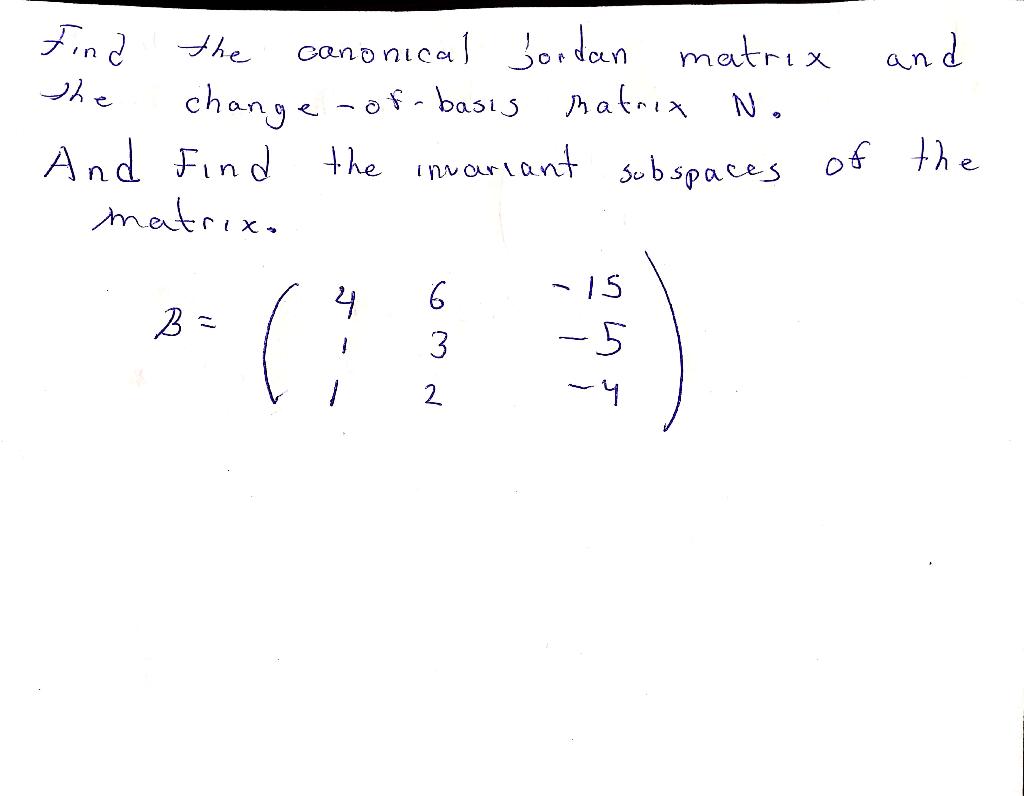 Find the canonical Jordan matrix and
the change-of-basis matrix N.
And Find the invariant subspaces of the
matrix.
B = ( 4 6 -15
1 3 -5
1 2 -4 )